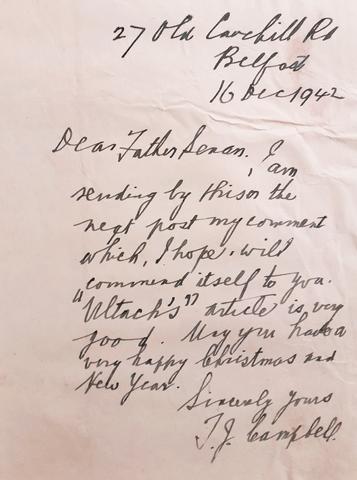 27 Old Cavehill Rd
Belfast
16 Dec 1942
Dear Father Senan, I am
sending by this or the
next post my comment
which, I hope, will
commend itself to you.
"Ultach's" article is very
good. May you have a
very happy Christmas and
New Year.
Sincerely yours
T. J. Campbell.